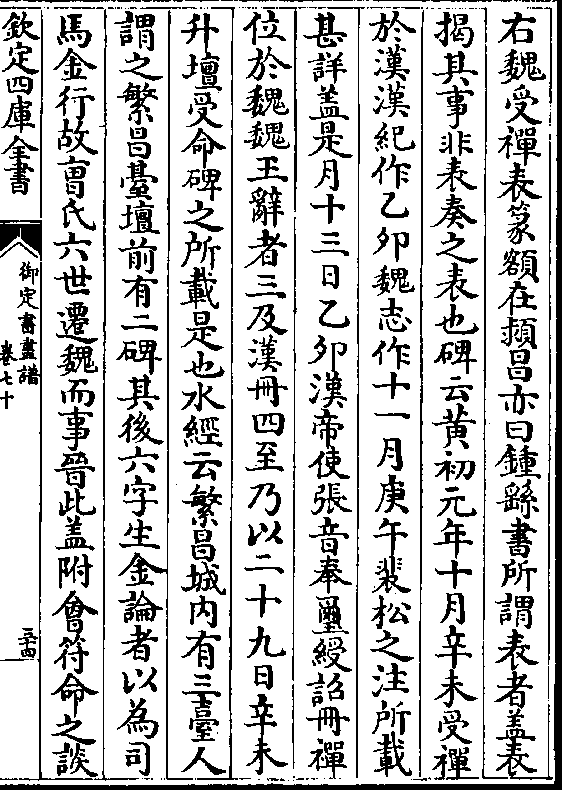 右魏受禪表篆額在潁昌亦曰鍾繇書所謂表者蓋表
揭其事非表奏之表也碑云黃初元年十月辛未受禪
於漢漢紀作乙卯魏志作十一月庚午裴松之注所載
甚詳蓋是月十三日乙卯漢帝使張音奉璽綬詔冊禪
位於魏魏王辭者三及漢冊四至乃以二十九日辛未
升壇受命碑之所載是也水經云繁昌城內有三臺人
謂之繁昌臺壇前有二碑其後六字生金論者以為司
馬金行故曹氏六世遷魏而事晉此蓋附會符命之談
欽定四庫全書
御定書畫譜
卷七十
三十四